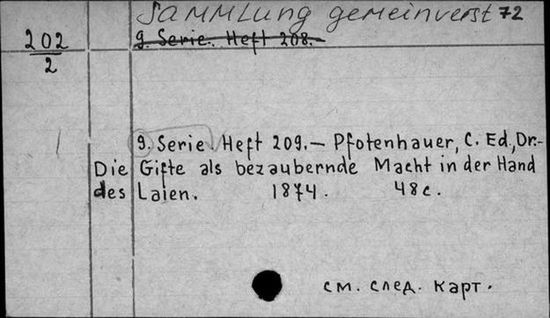 Sammlung gemeinverst 72
202
2
9. Serie. Heft 208.-
9. Serie. Heft 209.- Pfotenhauer, C. Ed., Dr.-
Die Gifte als bezaubernde Macht in der Hand
des Laien. 1874. 48 с.
см. след. карт.